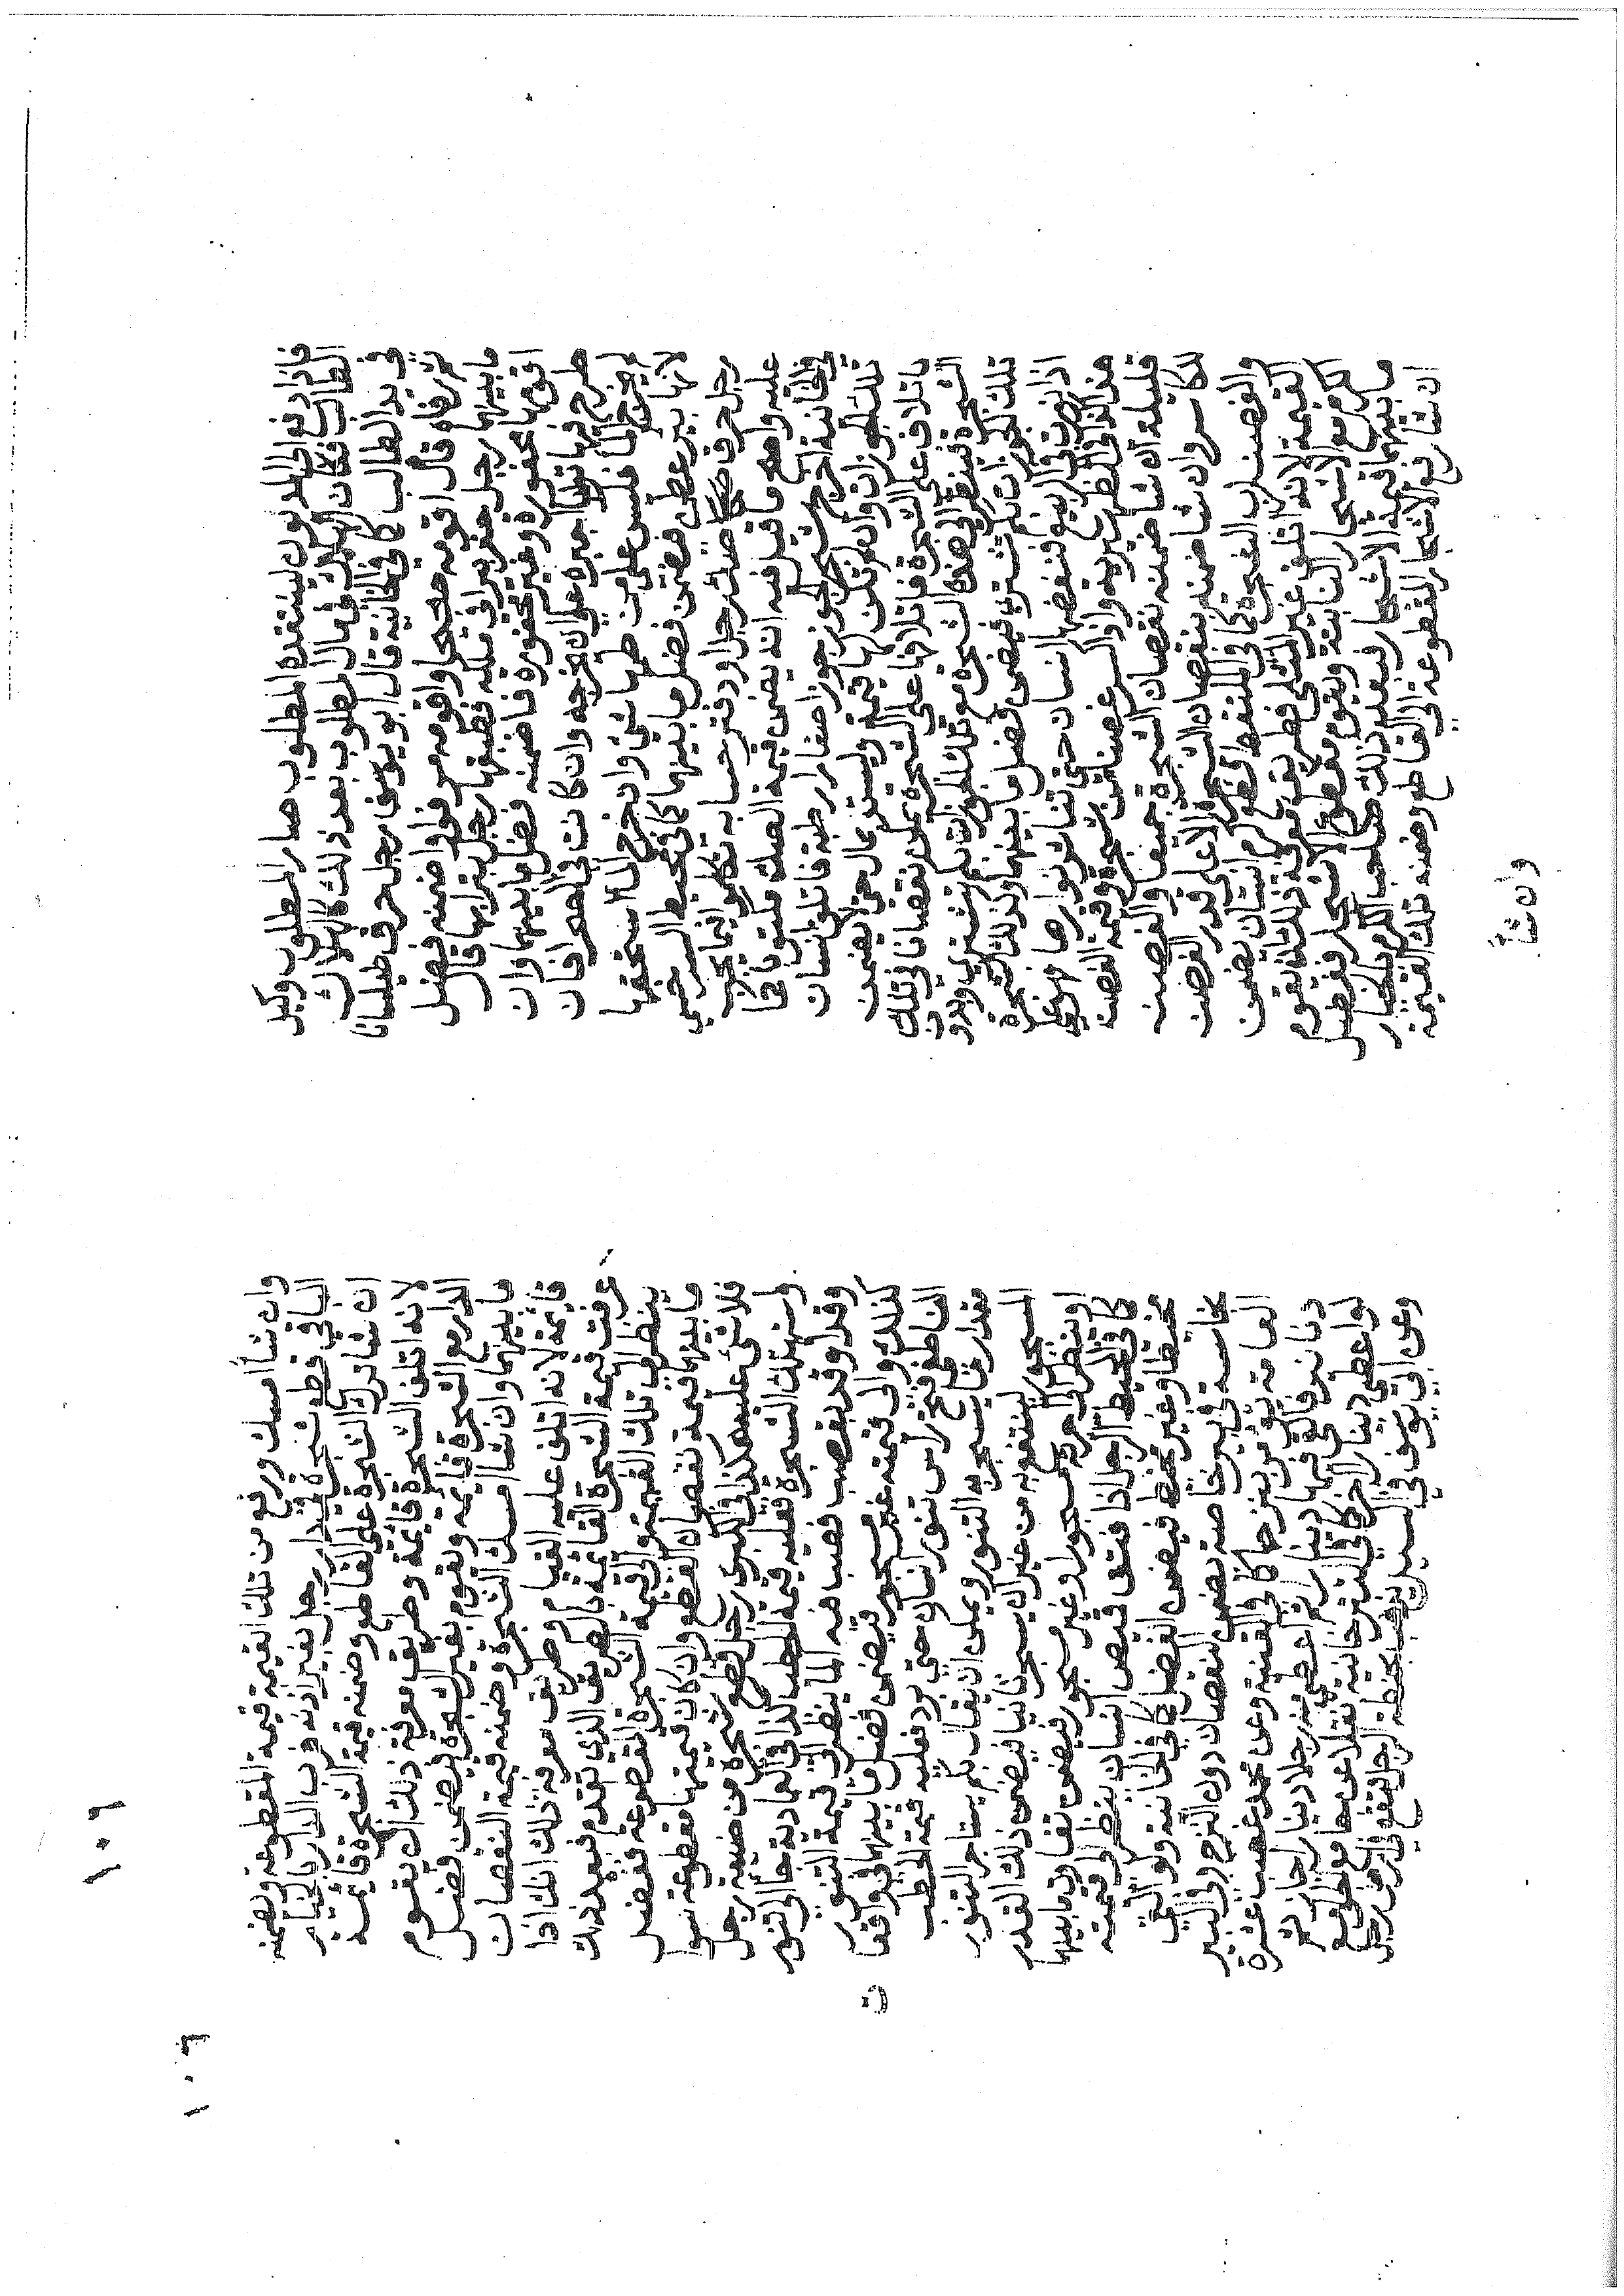 فاذا دفع الى المديون لينتقده المطلوب صار المطلوب وكيل
الطالب فكان الهلاك في مال المطلوب بعد ذلك كالهلاك
في يد الطالب كما في الخانية قال ابو يوسف رجل حرق طيلسانا
ثم رفاه قال اقومه صحيحا واقومه مرفوا واضمنه فضل
ما بينهما رجل حفر بيرا في ملكه فطمها رجل بترابها قال
اقومها محفورة وغير محفورة فاضمنه فضل ما بينهما وان
طرح فيها ترابا اجبره على ان يخرجه وان كانت في الصحرا فان
لم يخرج الما فليس على من طمها شي وان خرج الما استحقها
لانها بير عطن فيضمن فضل ما بينهما كما في محيط السرخسي
رجل حرق صكا صك رجل او دفتر حسابه تكلموا فيما يجب
عليه واصح ما قيل فيه انه يضمن قيمة الصك مكتوبا كما
في الخانية اخرج شجر الجوز جوزا صغارا رطبة فاتلف انسان
تلك الجوزات وان لم تكن لها قيمة وليست بمال حتى لا يضمن
باتلاف على الشجرة فاتلافها على الشجرة يمكن نقصانا في تلك
الشجرة فينظر الى هذه الشجرة مع تلك الجوزات بكم تشترى وبدون
تلك الجوزات بكم تشترى فيضمن فضل ما بينهما وكذلك شجرة
اذا نورت في الربيع فنفضها انسان حتى تناثر نوارها فهو على
هذا كذا في الظهيرية واذا كسر غصنا من شجرة وقيمة الغصن
قليلة ان شا ضمنه نقصان الشجرة جميعا والغصن
للكاسر وان شا ضمنه نقصان الشجرة الا على قدر الغصن
والغصن لرب الشجرة كما في الملتقط قطع كرم انسان يضمن
القيمة لانه اتلف غير المثلي وطريق معرفة ذلك ان تقوم
الكرم مع الاشجار النابتة ويقوم مقطوع الاشجار ففضل
ما بينهما قيمة الاشجار فبعد ذلك صاحب الكرم بالخيار
ان شا رفع الاشجار المقطوعة الى القاطع وضمنه تلك القيمة
وان شا
وان شا امسك ورفع من تلك القيمة قيمة المقطوعة ويضمنه
الباقي قطع شجرة في دار رجل بغير اذنه فرب الدار بالخيار
ان شا ترك الشجرة على القاطع وضمنه قيمة الشجرة قايمة
لانه اتلف الشجرة قايمة وطريق معرفة ذلك ان يقوم
الدار مع الشجرة قايمة وتقوم بغير الشجرة فيضمن فضل
ما بينهما وان شا امسك الشجرة وضمنه قيمة النقصان
قايمة لانه اتلف عليه القيام وطريق معرفة ذلك انك اذا
عرفت قيمة الشجرة القائمة بالطريق الذي تقدم فبعد ذلك
ينظر الى تلك القيمة والى قيمة الشجرة المقطوعة ففضل
ما بينهما قيمة نقصان القطع وان كان قيمتها مقطوعة سوا
فلا شي عليه هكذا في الكبرى رجل قطع شجرة من ضيعة رجل
واستهلك الشجرة فعليه قيمة الحطب كذا في العمادية جا الى تنور
وقد اوقد بقصب فصب فيه الما ينظر الى قيمة التنور
كذلك والى قيمته غير مسجور فيضمن فضل ما بينهما في واقعات
الناطفي فتح راس تنور انسان حتى برد فعليه قيمة الحطب
مقدار ما يسجر به التنور ويمكن ان يقال بكم يستاجر التنور
المسجور لينتفع به من غير ان يسجر ثانيا فيضمن ذلك القدر
او ينظر الى اجرته مسجورا وغير مسجور فيضمن تفاوت ما بينهما
كما في المحيط الرجل اذا فتق قميص انسان ينظر الى قيمته
مخيطا وغير مخيط فيضمن الفضل كما في الخانية ولو القى
نجاسة في بير خاصة يضمن النقصان دون النزح وفي البير
العامة يؤمر بنزحها كما في القنية وعن محمد غصب عشرة
دنانير فالقى فيها دينارا ثم اعطى منه رجلا دينارا جاز ثم
لو اعطى دينارا اخر كما في التترخانية نقلا عن جامع الجوامع
وعن ابي يوسف في السيل يذهب بحنطة الرجل فتقع في ارض رجل
١٠٩
١٠٩